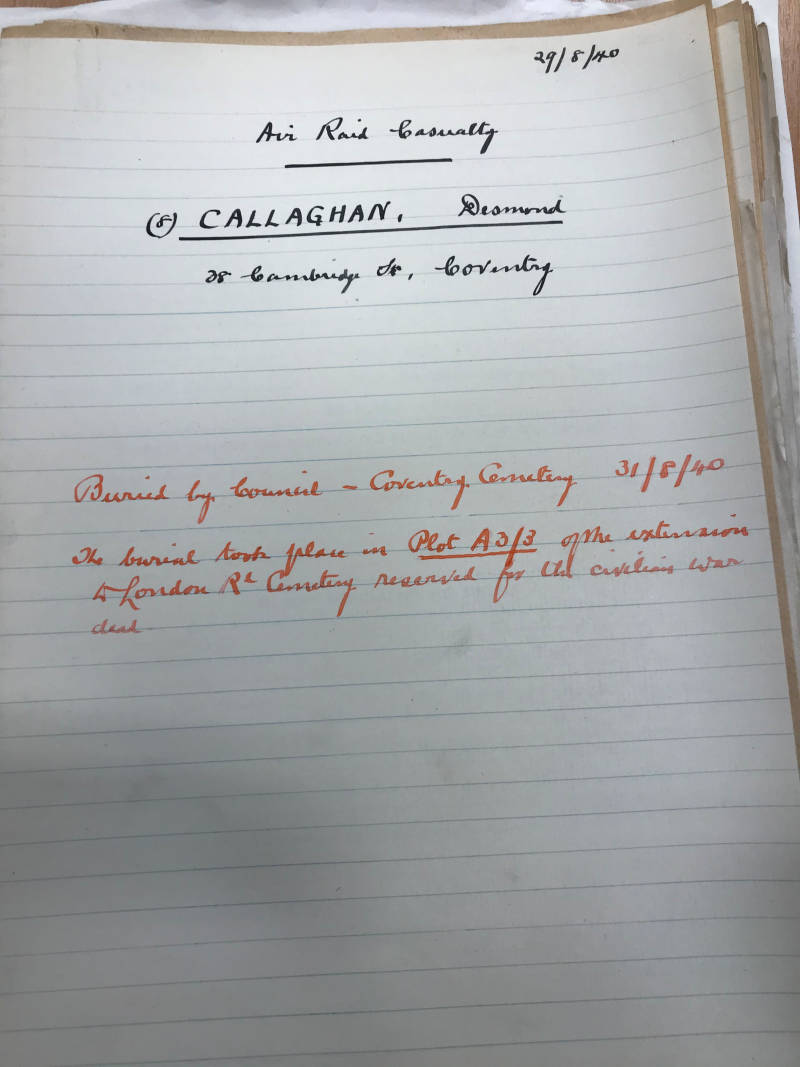 29/8/40
Air Raid Casualty
(8) CALLAGHAN, Desmond
28 Cambridge St, Coventry
Buried by Council - Coventry Cemetery 31/8/40
The burial took place in Plot A3/3 of the extension
to London Rd Cemetery reserved for the civilian war
dead